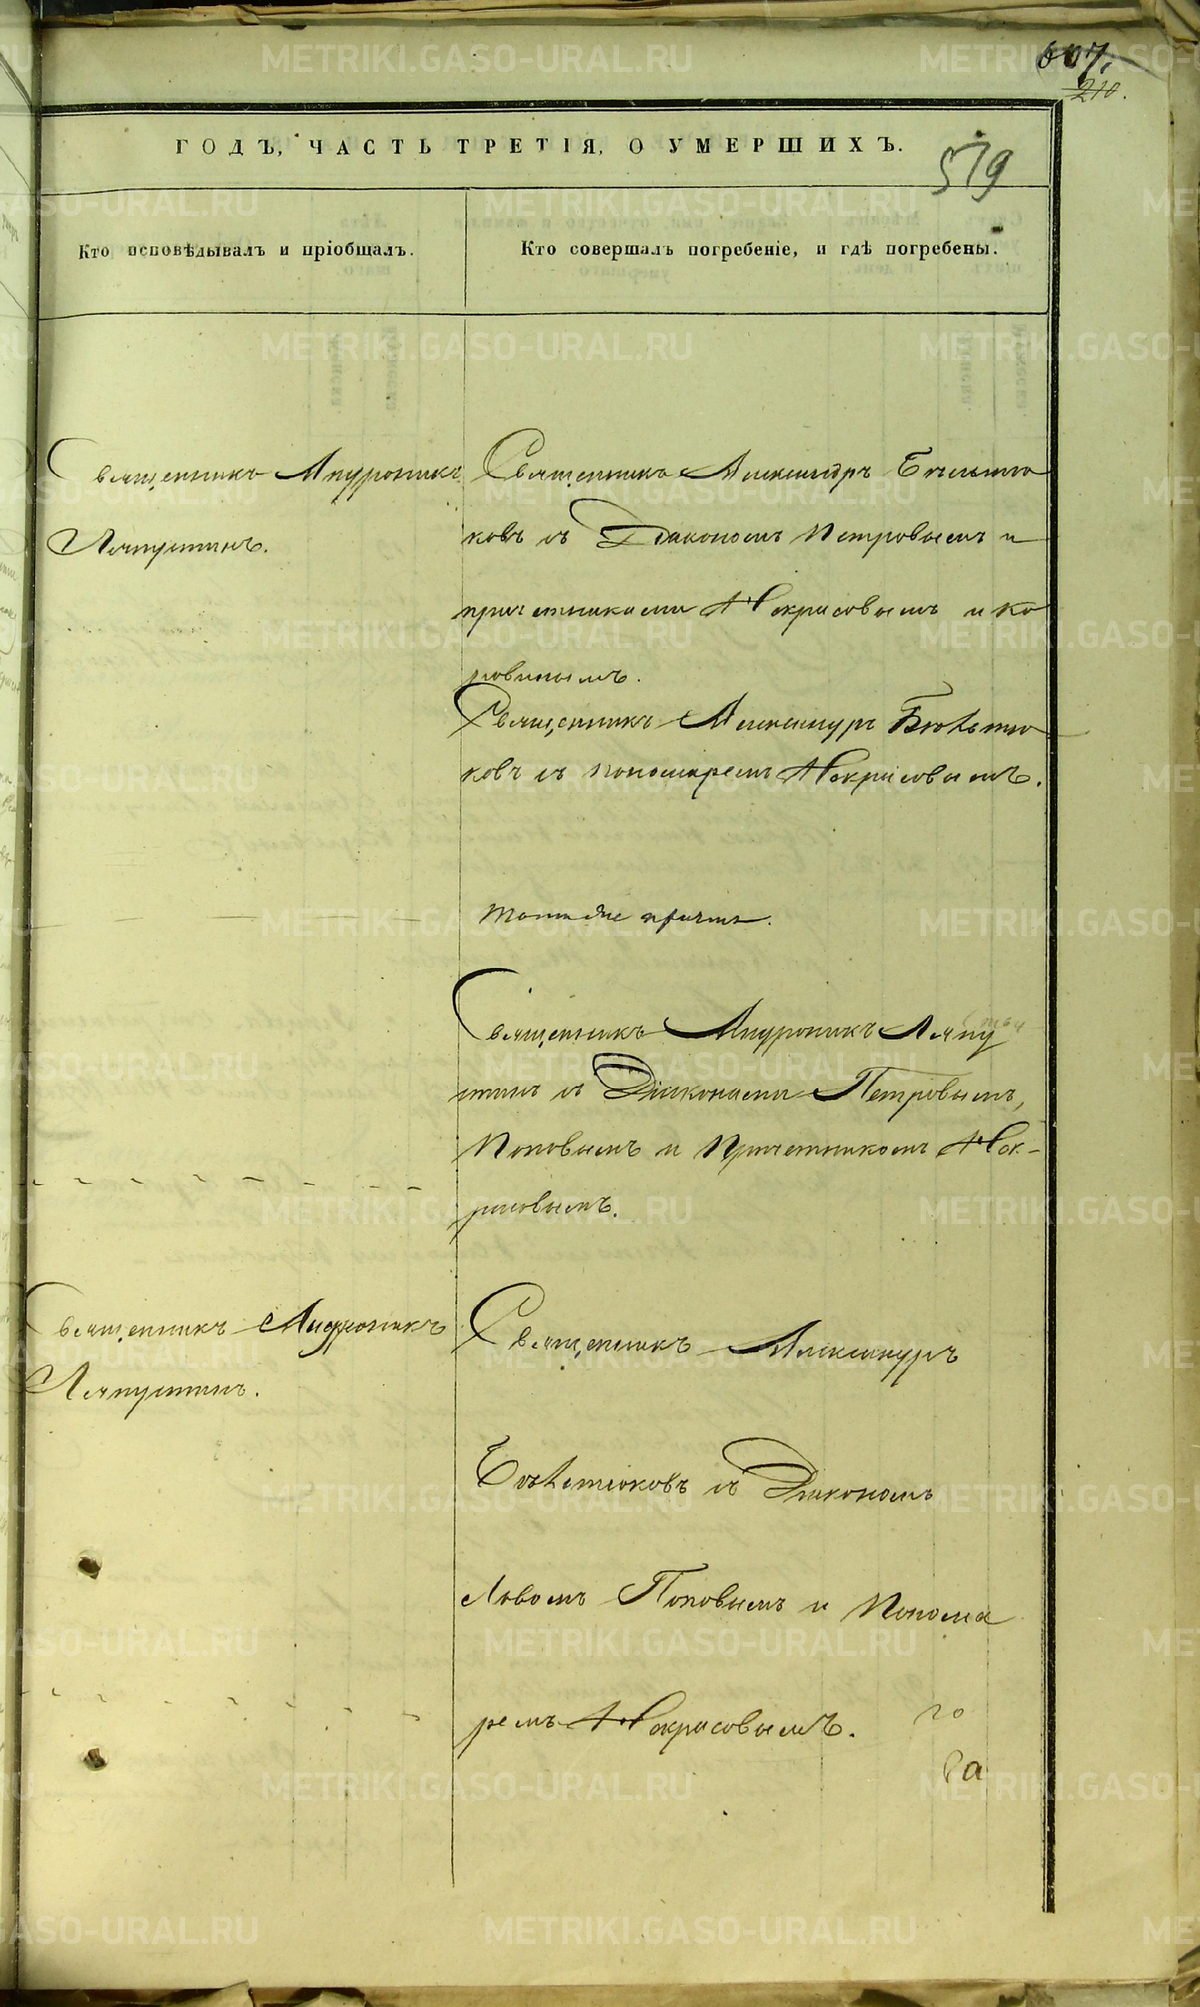 607.
210.
ГОДЪ, ЧАСТЬ ТРЕТІЯ, О УМЕРШИХЪ.
579
Кто исповѣдывалъ и пріобщалъ.
Кто совершалъ погребеніе, и гдѣ погребены.
Священникъ Андроникъ
Ляпустинъ.
Священникъ Александръ
ковъ съ Діакономъ Петровымъ и
причетниками Некрасовымъ и Ко
ровинымъ.
Священникъ Александръ
ковъ съ пономаремъ Некрасовымъ.
Тотъ же причтъ.
Священникъ Андроникъ Ляпу
стинъ съ Діаконами Петровымъ,
Поповымъ и Причетникомъ Нек-
расовымъ.
Священникъ Андроникъ
Ляпустинъ.
Священникъ Александръ
съ Діакономъ
Львомъ Поповымъ и Понома
ремъ Некрасовымъ.
METRIKI.GASO-URAL.RU